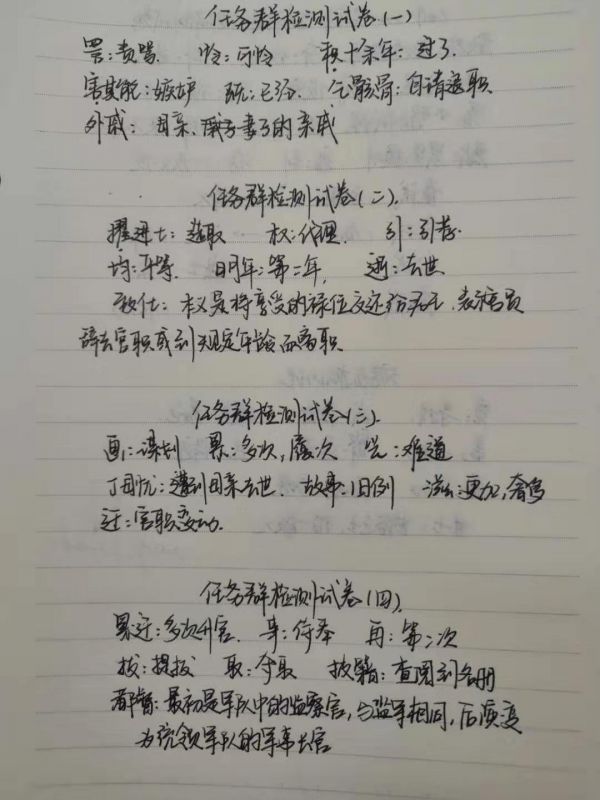 任务群检测试卷(一)
詈:责骂 怜:可怜 积十余年:过了
害其能:嫉妒 既:已经 乞骸骨:自请退职
外戚:母亲、或者妻子的亲戚
任务群检测试卷(二)
擢进士:选取 权:代理 引:引荐
均:平等 明年:第二年 逝:去世
致仕:本义是将享受的禄位交还给君王,表示官员
辞去官职或到规定年龄而离职
任务群检测试卷(三)
画:谋划 累:多次,屡次 岂:难道
丁母忧:遭到母亲去世 故事:旧例 滋:更加,奢侈
迁:官职变动
任务群检测试卷(四)
累迁:多次升官 事:侍奉 再:第二次
拔:提拔 取:夺取 披籍:查阅到名册
都督:最初是军队中的监察官,与监军相同,后演变
为统领军队的军事长官